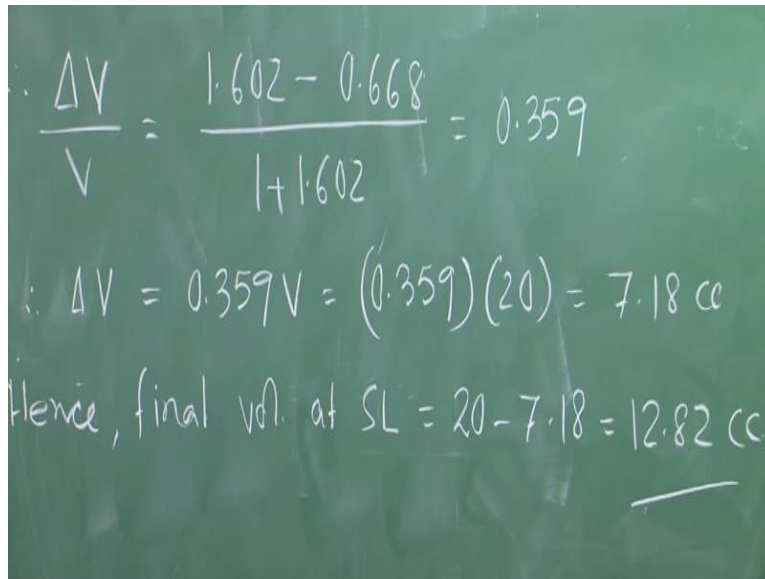 ∴ ΔV/V = (1.602 - 0.668)/(1+1.602) = 0.359
∴ ΔV = 0.359V = (0.359)(20) = 7.18 cc
Hence, final vol. at SL = 20 - 7.18 = 12.82 cc